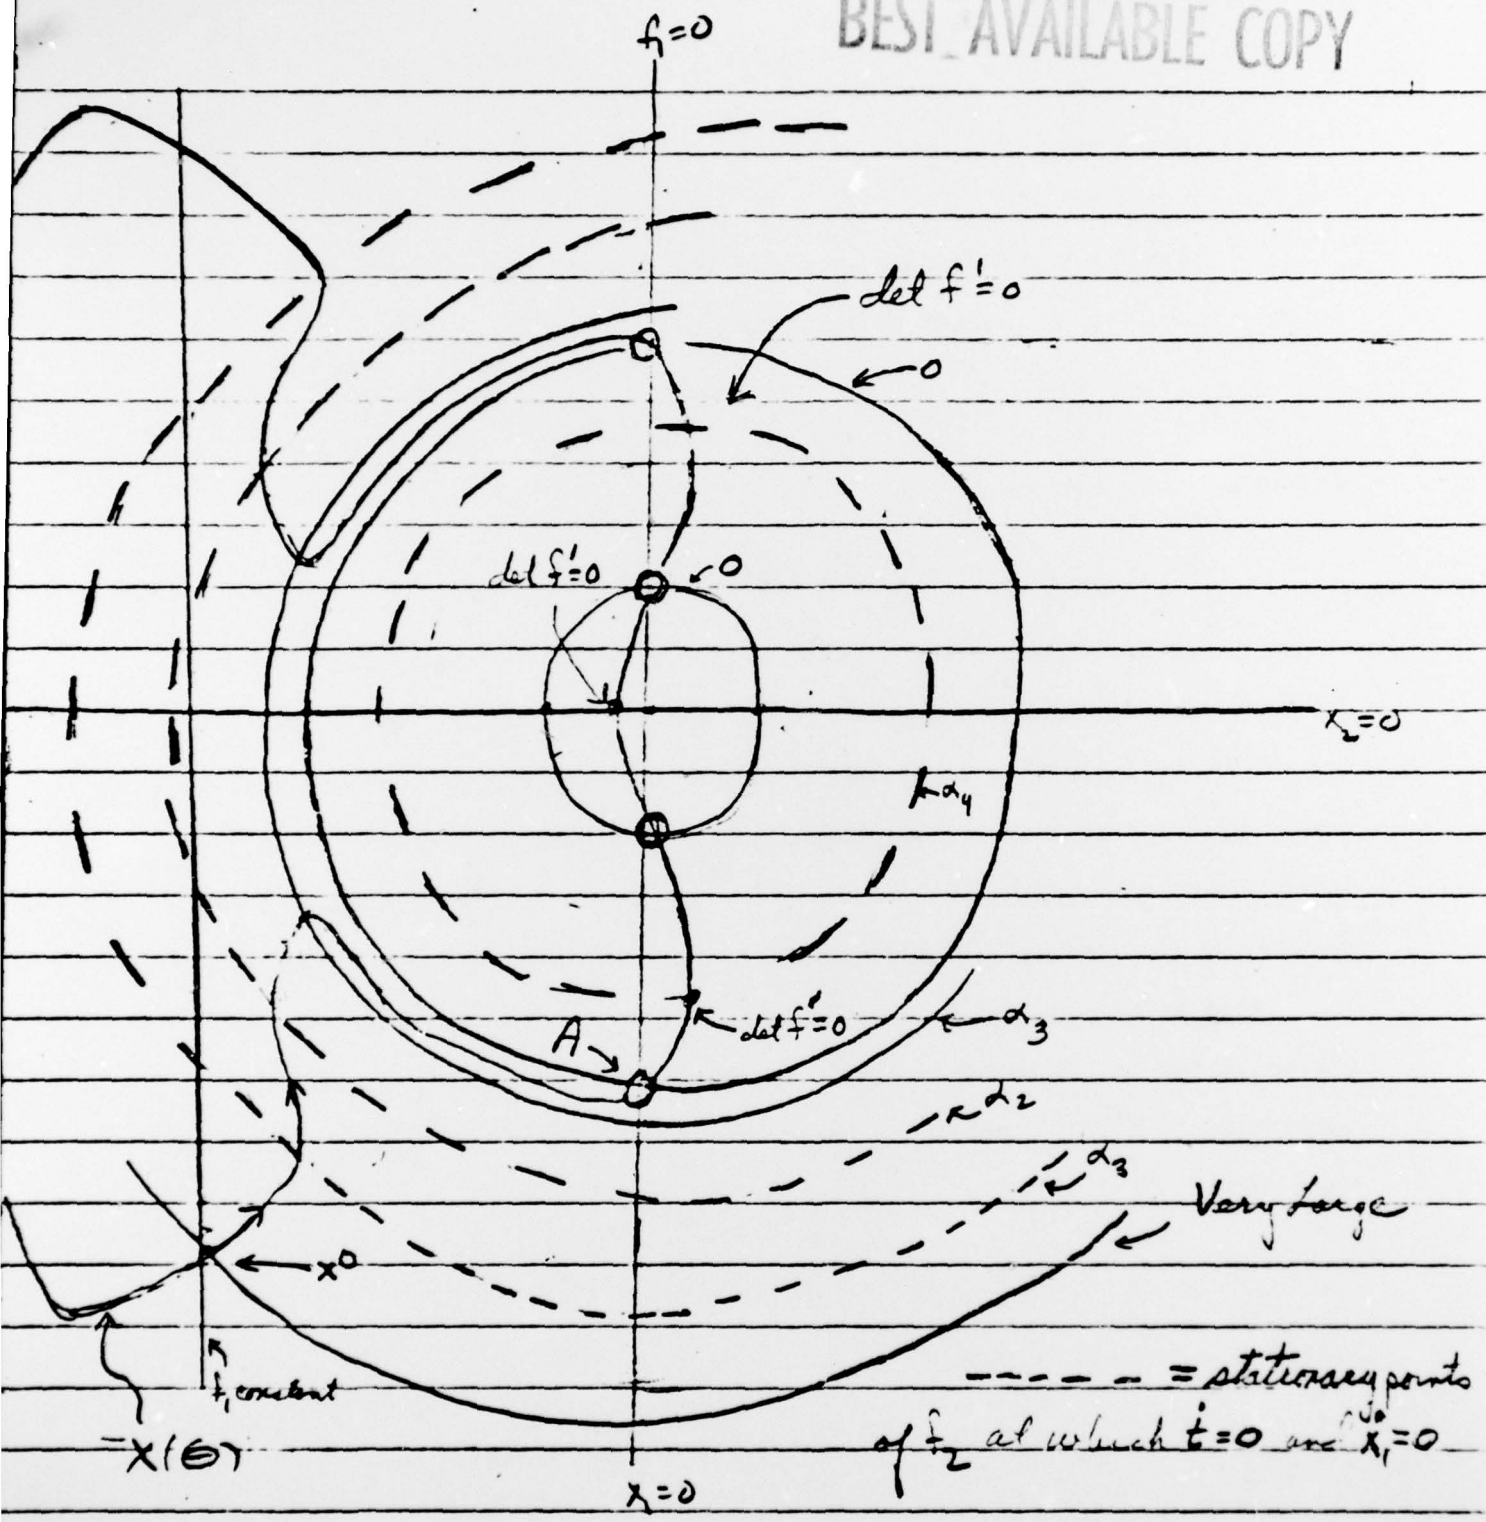 BEST AVAILABLE COPY
f₁=0
det f'=0
0
det f'=0
0
x₂=0
α₄
A
det f'=0
α₃
α₂
α₃
Very Large
x⁰
f₁ constant
----- = stationary points
of f₂ at which ṫ=0 and ẋ₁=0
x(θ)
x₁=0